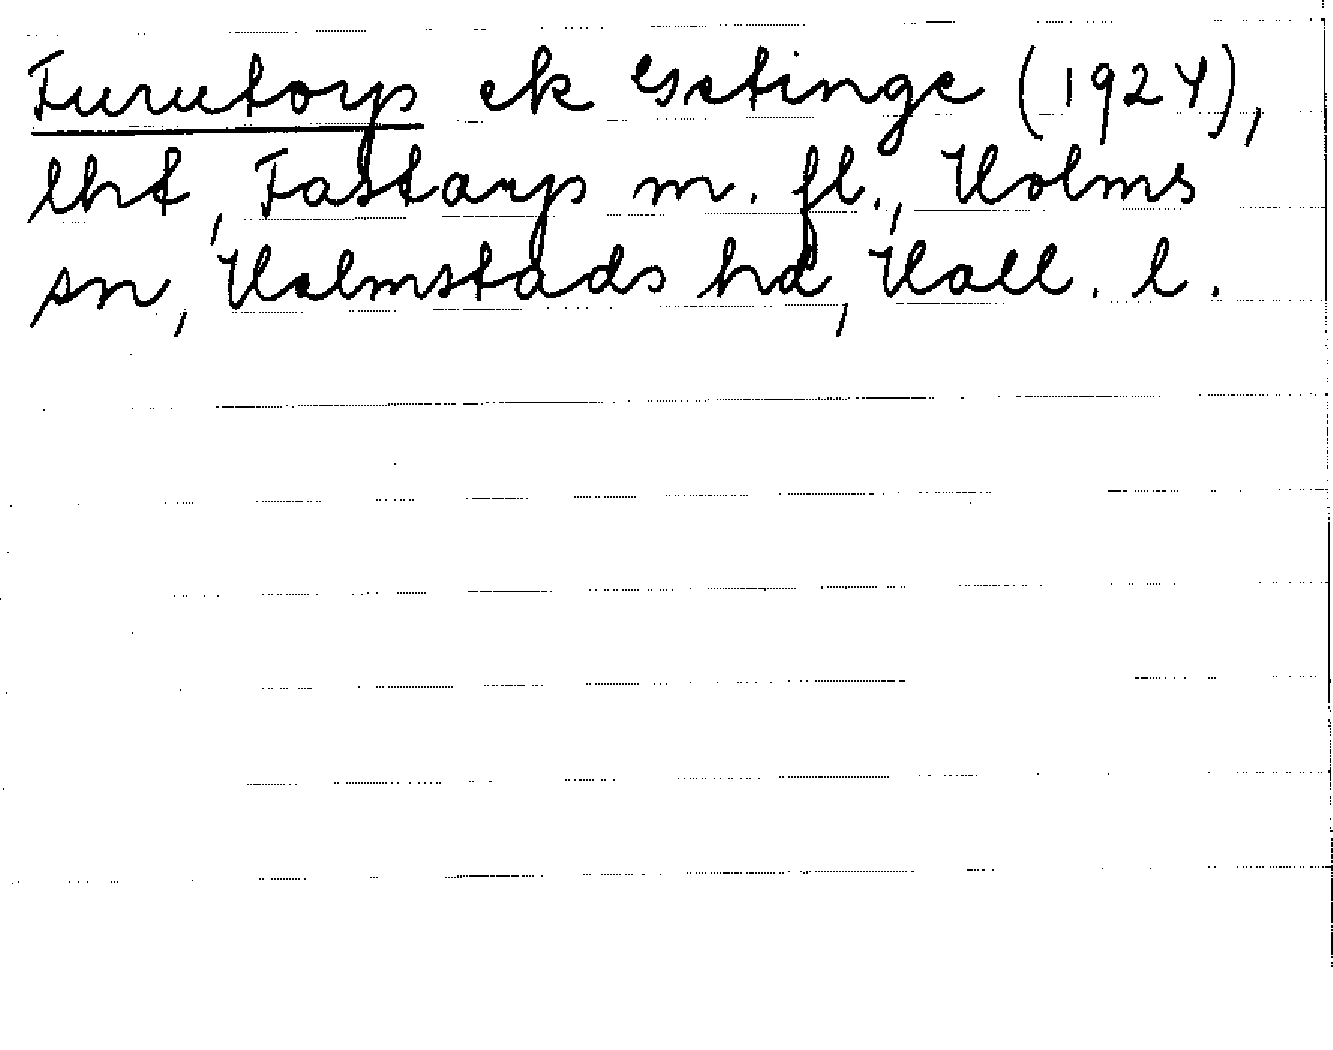 Furutorp ek Getinge (1924),
lht, Fastarp m. fl., Holms
sn, Halmstads hd, Hall. l.